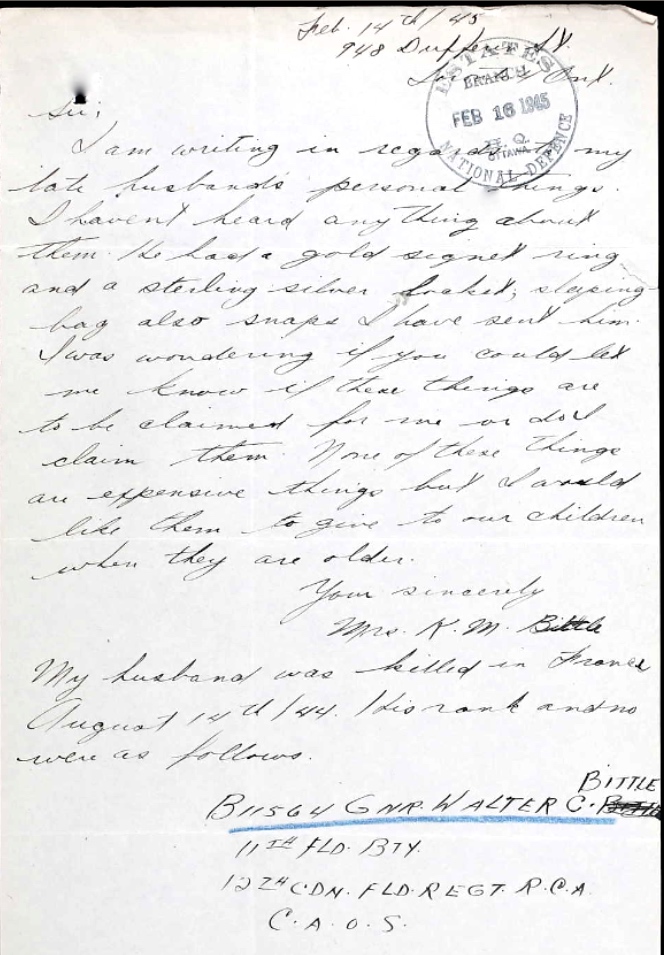 Feb. 14th/45
948 Dufferin St.
Ont.
ESTATES
BRANCH
FEB 16 1945
H. Q.
OTTAWA
NATIONAL DEFENCE
Sir;
I am writing in regards to my
late husband's personal things.
I haven't heard anything about
them. He had a gold signet ring
and a sterling silver locket; sleeping
bag also snaps I have sent him.
I was wondering if you could let
me know if these things are
to be claimed for me or do I
claim them. None of these things
are expensive things but I would
like them to give to our children
when they are older.
Your sincerely
Mrs. K. M. Bittle
My husband was killed in France
August 14th/44. His rank and no
were as follows.
BITTLE
B11564 GNR. WALTER C.
11TH FLD. BTY.
12TH CDN. FLD. REGT. R.C.A.
C.A.O.S.